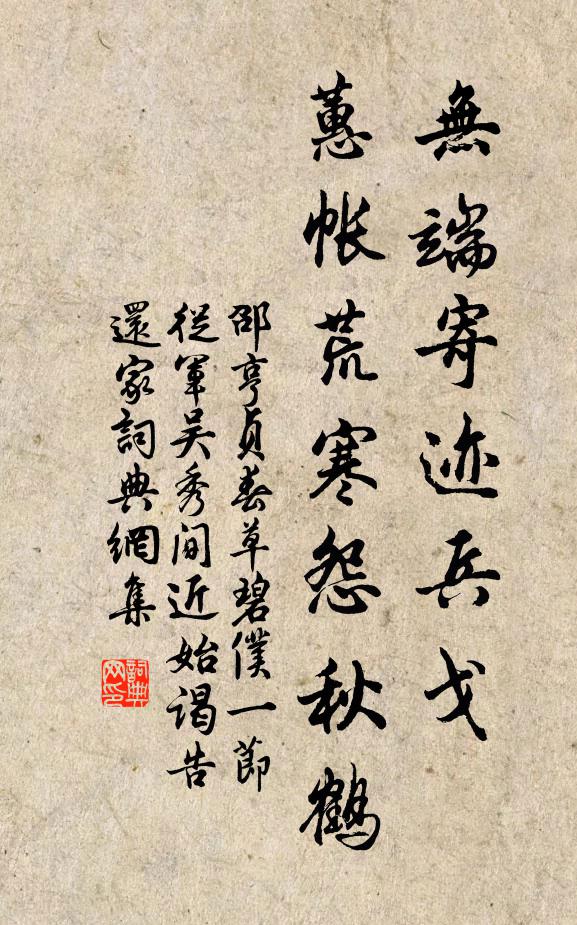 無端寄迹兵戈
蕙帳荒寒怨秋鶴
邵亨貞春草碧僕一節
從軍吳秀間近始謁告
還家詞典網集
詞典网印